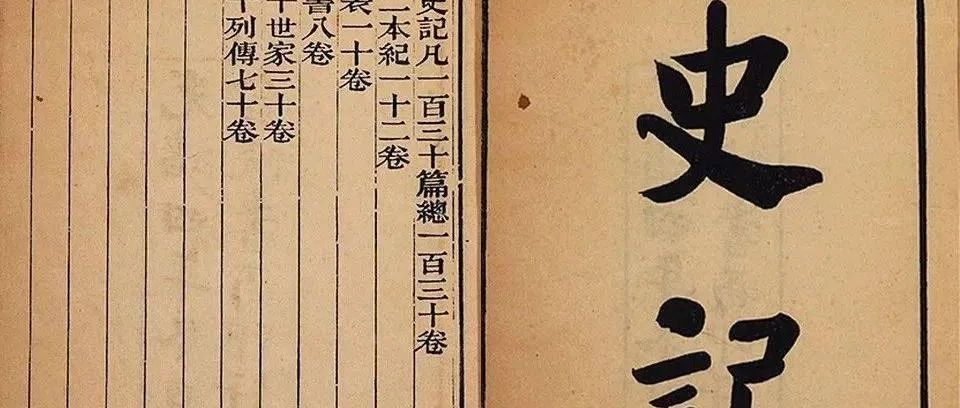 史記
史記凡一百三十篇總一百三十卷
二本紀一十二卷
表一十卷
書八卷
十世家三十卷
十列傳七十卷